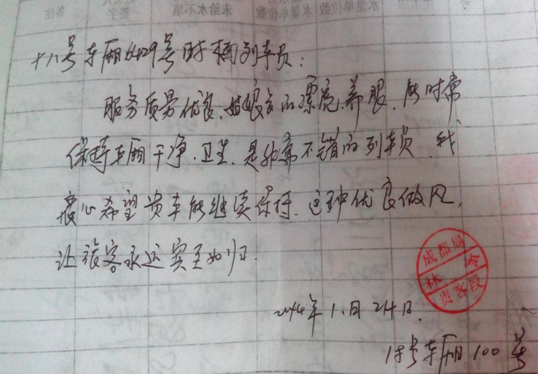 十八号车厢6429号时楠列车员：
服务质量优良，姑娘长的漂亮、养眼，能时常
保持车厢干净、卫生，是非常不错的列车员，我
衷心希望贵车能继续保持，这种优良做风，
让旅客永远宾至如归．
成都局
贵客段
2014年1月24日．
18号车厢100号